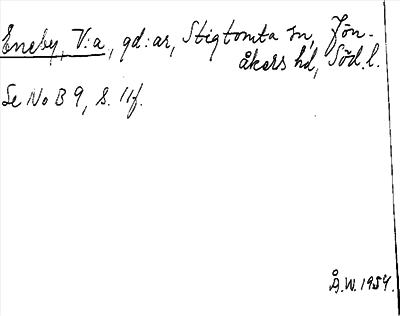 Eneby, V:a, gd:ar, Stigtomta sn, Jön-
åkers hd, Söd.l.
Se No B 9, s. 11f.
Å.W. 1954.